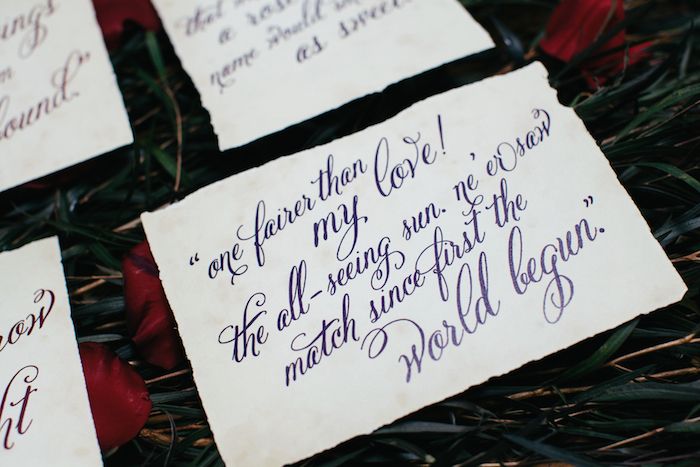 that
a rose
name would
as sweet
“one fairer than
my love!
the all-seeing sun. ne’er saw
match since first the
world begun.”